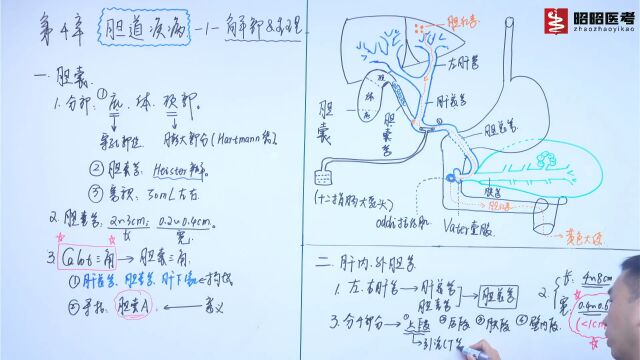 昭昭医考
zhaozhaoyikao
第4章 胆道疾病 -1- 解剖&生理
一. 胆囊
1. 分部: ① 底、体、颈部。
穿孔部位 膨大部分(Hartmann袋)
② 胆囊管: Heister瓣。
③ 容积: 50mL左右
2. 胆囊管: 2~3cm; 0.2~0.4cm。
长 宽
3. Calot三角 → 胆囊三角
① 肝总管、胆囊管、肝下缘 ← 构成
② 寻找: 胆囊A ← 意义
左肝管
肝总管
体
胆囊
胆囊管
胆总管
胰管
(十二指肠大乳头)
oddi括约肌
Vater壶腹
黄色大便
二. 肝内、外胆管
1. 左、右肝管 → 肝总管
胆囊管
胆总管
2. 长: 4~8cm
宽: 0.4~0.6
(<1cm)
3. 分4部分 → ①上段 ②后段 ③胰段 ④壁内段